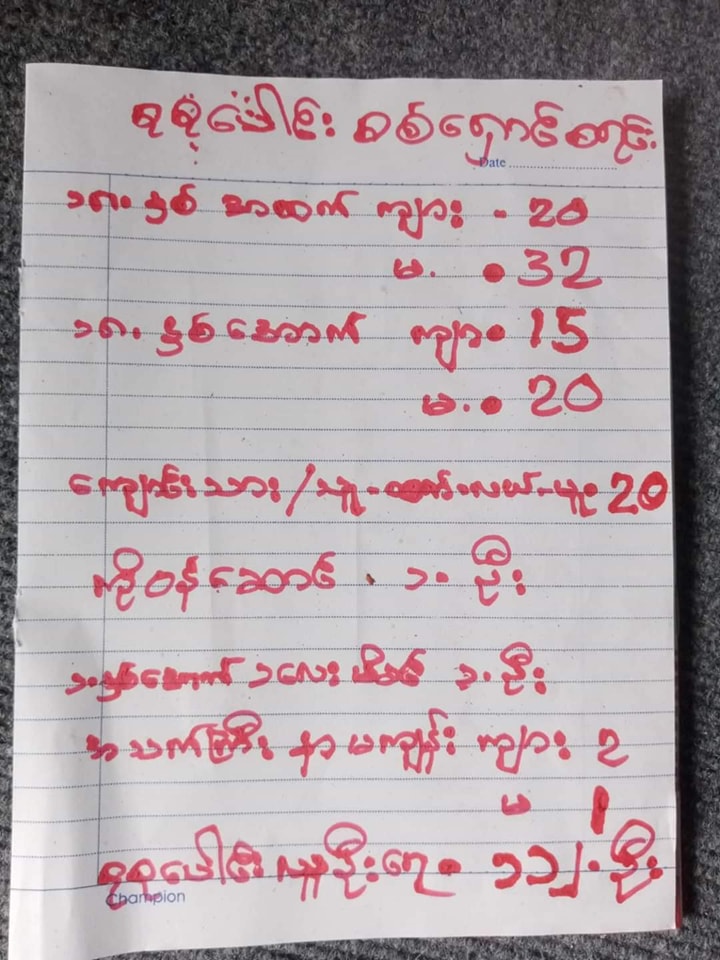 ရစုပေါင်း စစ်ရှောင်စာရင်း
Date
၁၈. နှစ် အထက် ကျား - 20
မ. • 32
၁၈. နှစ်အောက် ကျား • 15
မ. • 20
ကျောင်းသား / သူ 20
ကိုဝန်ဆောင် ၁. ဦး
၁.နှစ်အောက် ၁. ဦး
အသက်ကြီး နာမကျန်း ကျား ၃
မ 1
စုစုပေါင်း လူဦးရေ . ၁၁၂. ဦး
Champion